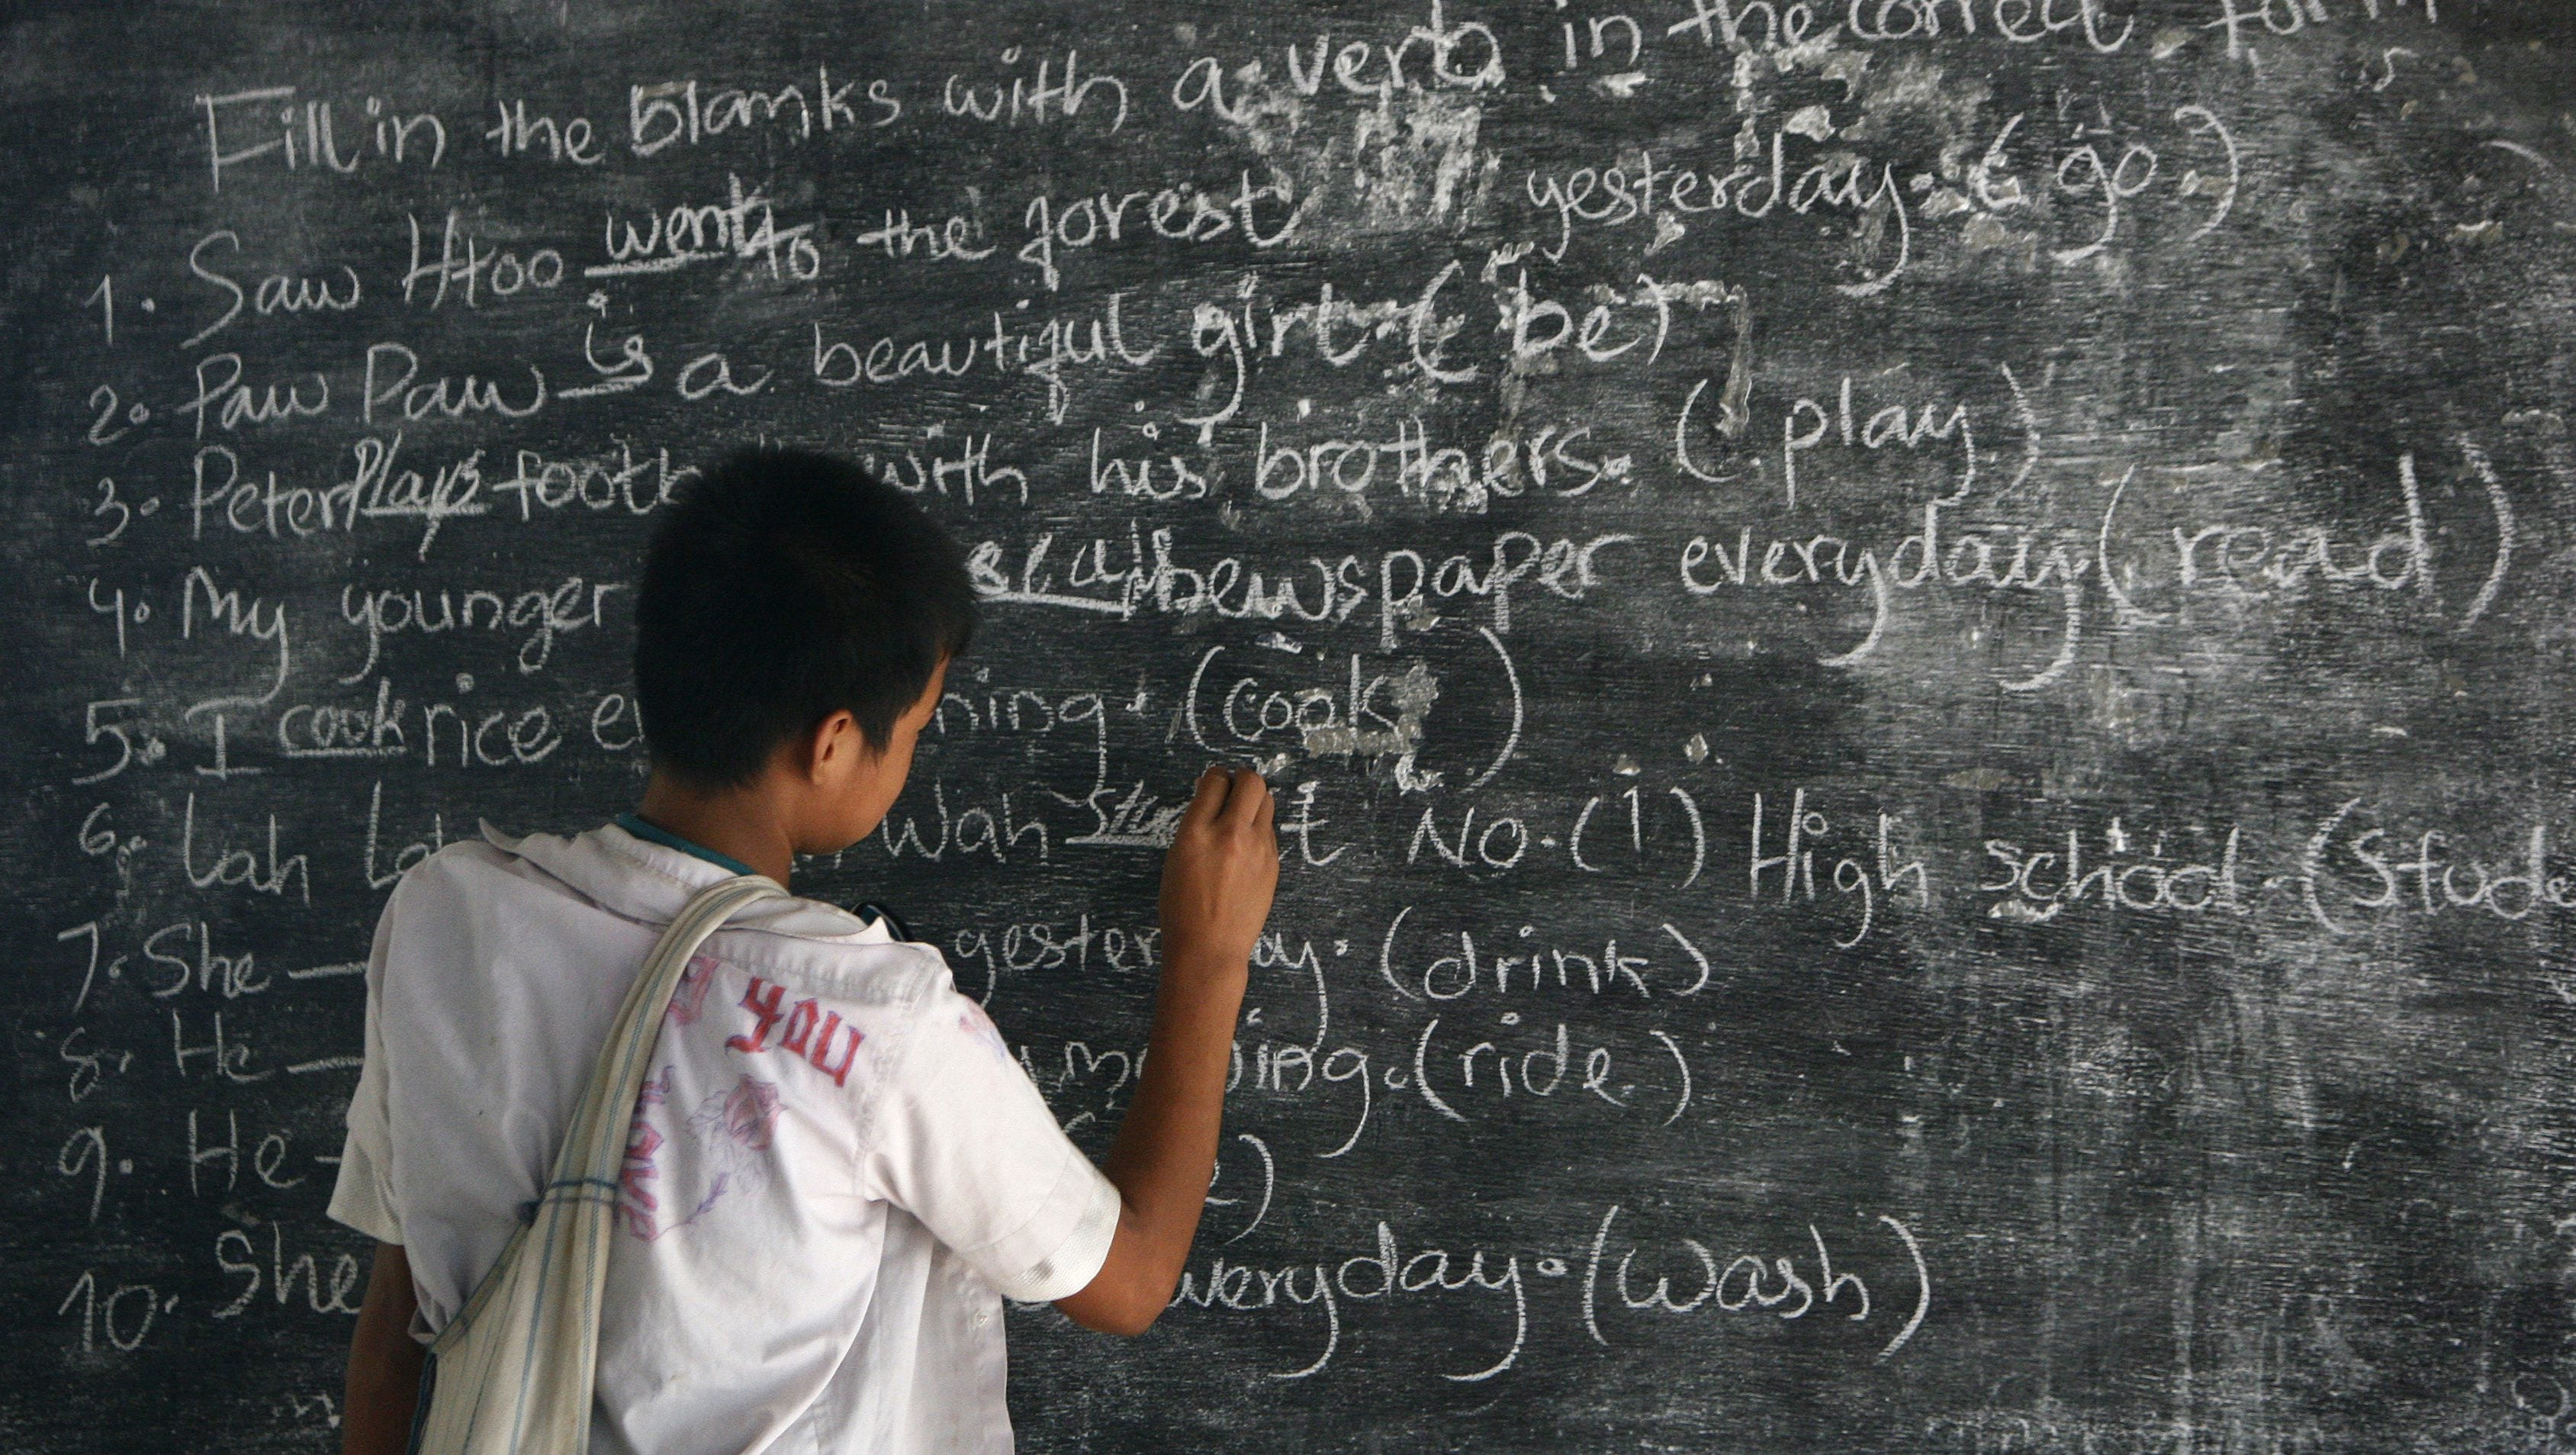 Fill in the blanks with a verb in the correct form
1. Saw Htoo went to the forest yesterday. (go.)
2. Paw Paw is a beautiful girl. (be)
3. Peter plays with his brothers. (play)
4. My younger newspaper everyday. (read)
5. I cook rice (cook)
6. Lah Wah No. (1) High school.
7. She (drink)
8. He (ride)
9. He
10. She everyday. (wash)
YOU